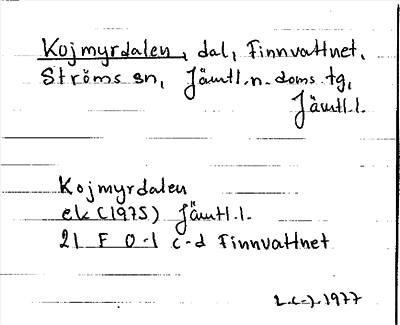 Kojmyrdalen, dal, Finnvattnet,
Ströms sn, Jämtl. n. doms. tg,
Jämtl. l.
Kojmyrdalen
ek (1975) Jämtl. l.
21 F 0-1 c-d Finnvattnet
1977